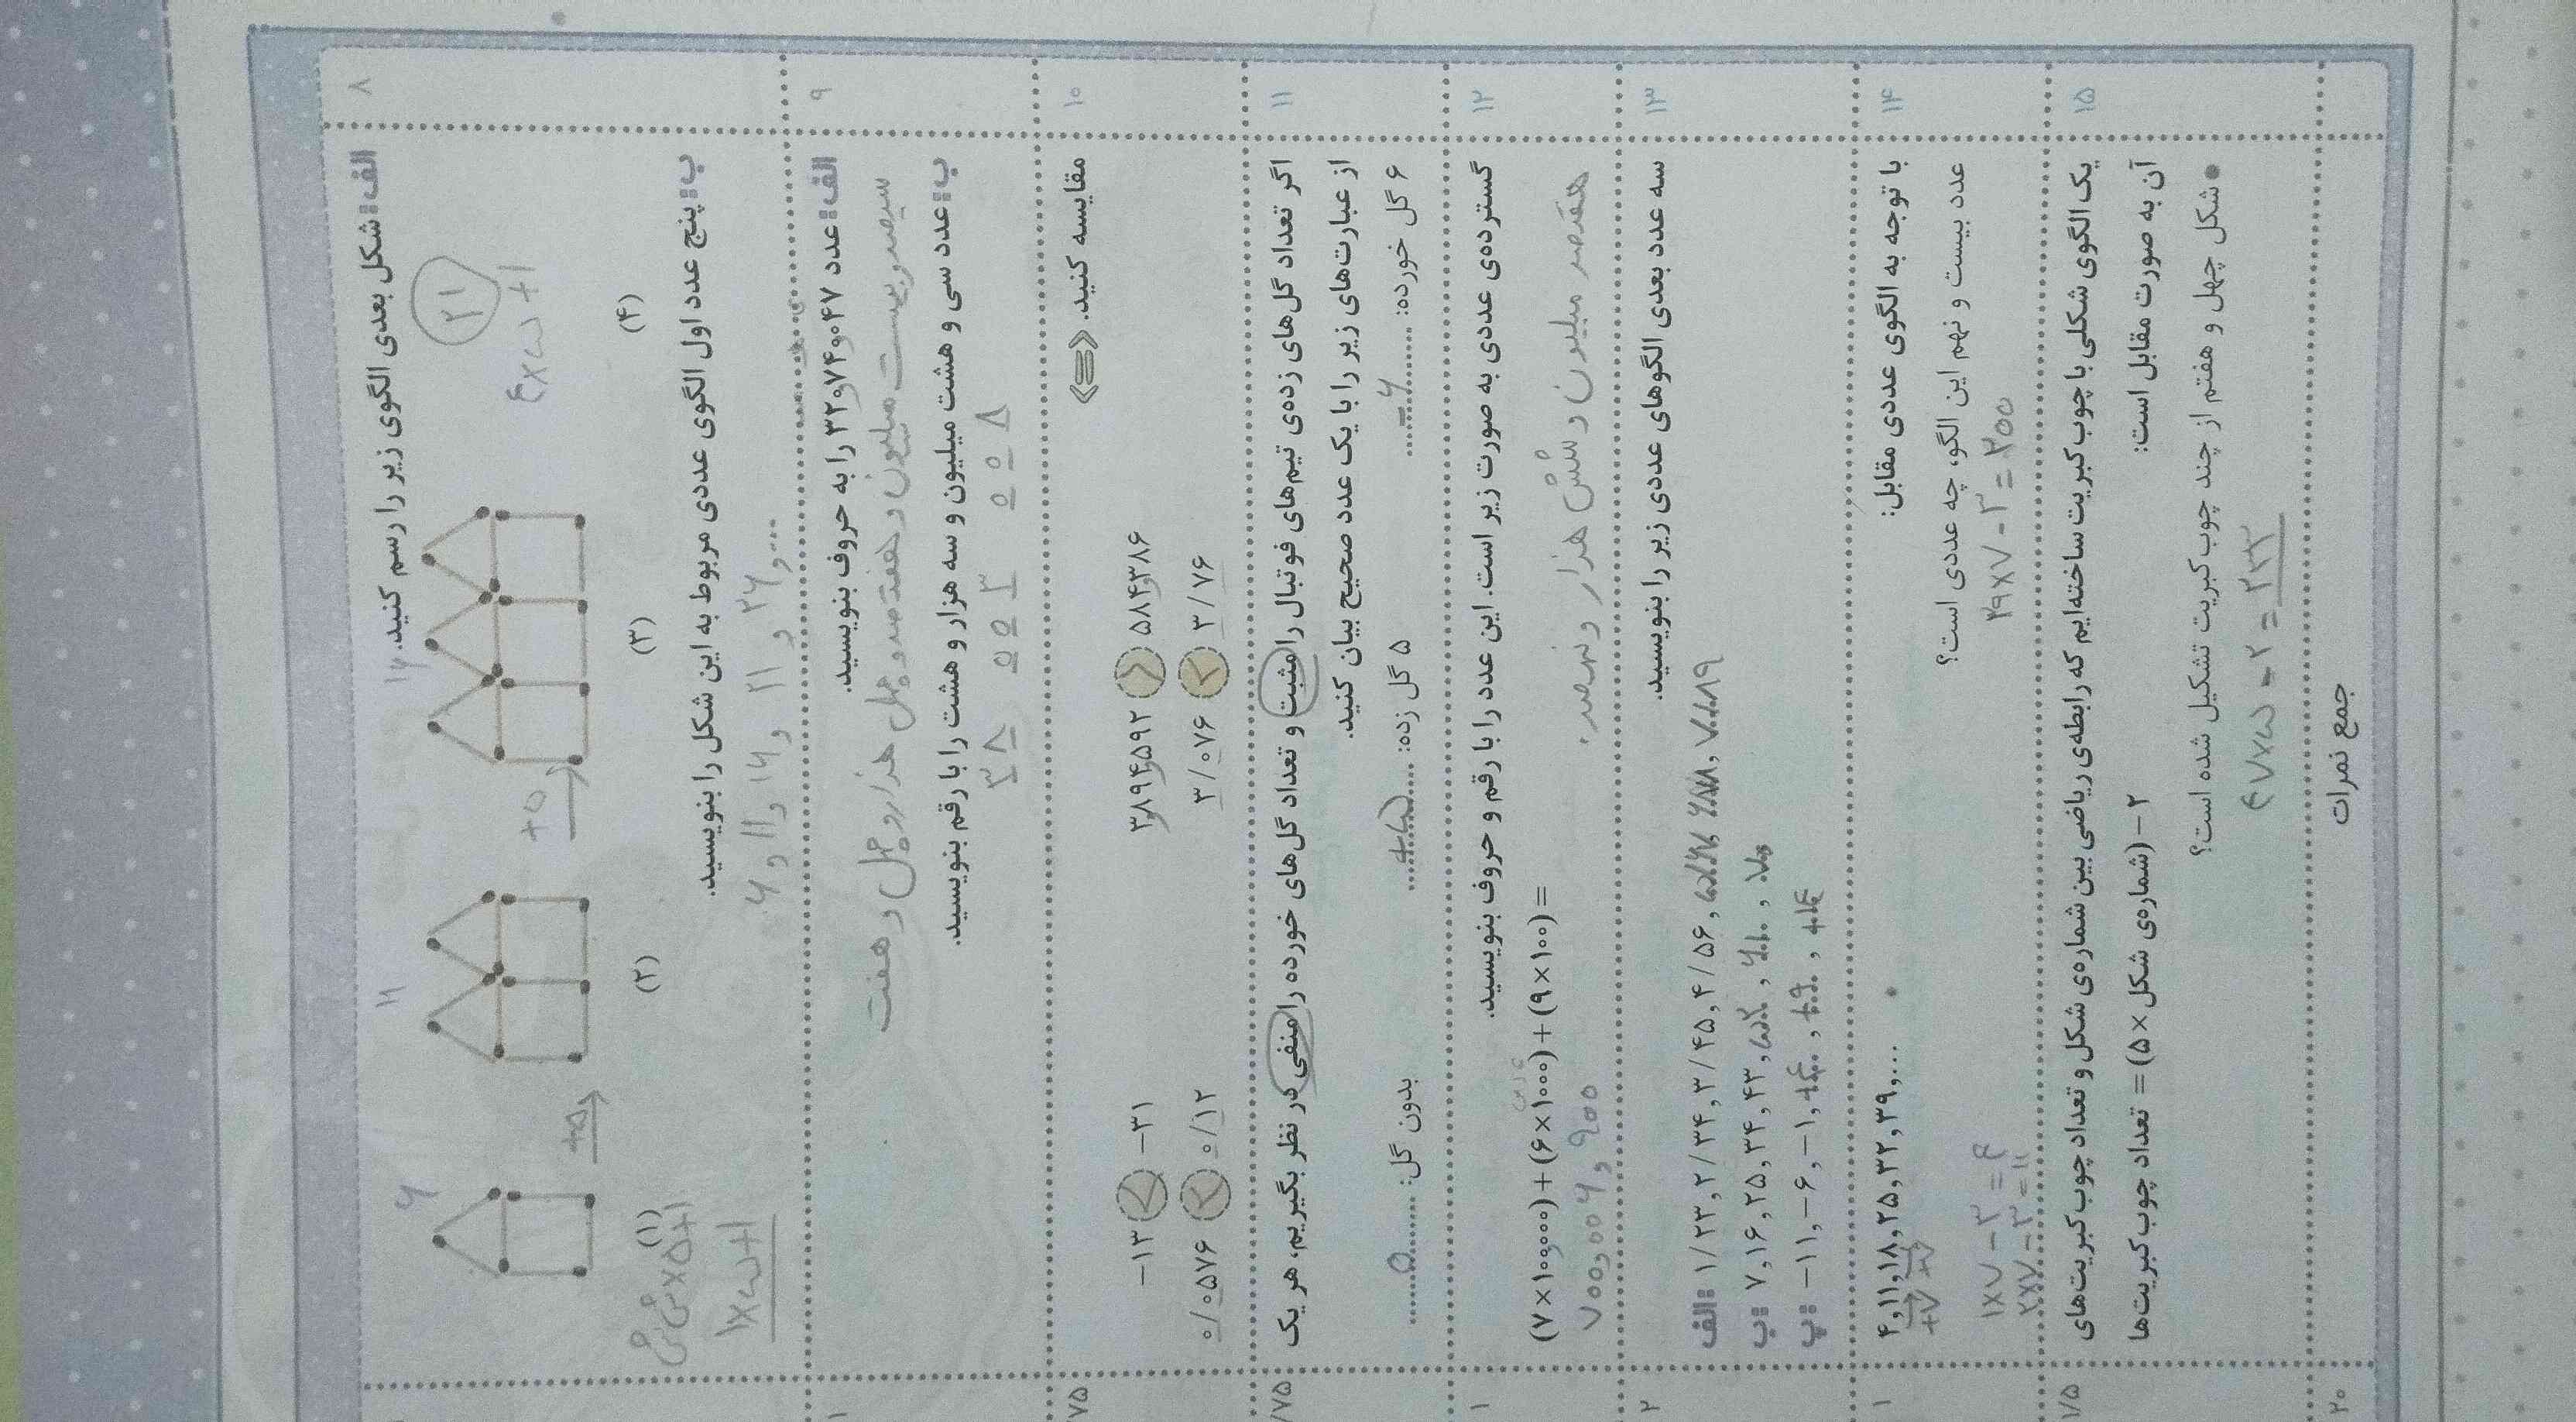 ۸
الف: شکل بعدی الگوی زیر را رسم کنید.
۶
۱۱
۱۶
۲۱
+۵
+۵
۴×۵+۱
(۱)
(۲)
(۳)
(۴)
ش ش×۵+۱
۱×۵+۱
ب: پنج عدد اول الگوی عددی مربوط به این شکل را بنویسید.
۶ و ۱۱ و ۱۶ و ۲۱ و ۲۶ و ...
۹
۱
الف: عدد ۳۲۰٫۷۴۰٫۰۴۷ را به حروف بنویسید.
سیصد و بیست میلیون و هفتصد و چهل هزار و چهل و هفت
ب: عدد سی و هشت میلیون و سه هزار و هشت را با رقم بنویسید.
۳۸ ۰۰۳ ۰۰۸
۱۰
۷۵
مقایسه کنید. <=>
-۱۳ > -۳۱
۳٫۸۹۴٫۵۹۲ > ۵۸۴٫۳۸۶
۰/۰۵۷۶ < ۰/۱۲
۳/۰۷۶ < ۳/۷۶
۱۱
/۷۵
اگر تعداد گل‌های زده‌ی تیم‌های فوتبال را مثبت و تعداد گل‌های خورده را منفی در نظر بگیریم، هر یک
از عبارت‌های زیر را با یک عدد صحیح بیان کنید.
۶ گل خورده: -۶
۵ گل زده: +۵
بدون گل: ۰
۱۲
۱
گسترده‌ی عددی به صورت زیر است. این عدد را با رقم و حروف بنویسید.
(۷×۱۰۰٫۰۰۰٫۰۰۰)+(۶×۱۰۰۰)+(۹×۱۰۰)=
۷۰۰,۰۰۶,۹۰۰
هفتصد میلیون و شش هزار و نهصد.
۱۳
۲
سه عدد بعدی الگوهای عددی زیر را بنویسید.
الف: ۱/۲۳ , ۲/۳۴ , ۳/۴۵ , ۴/۵۶ ,
ب: ۷ , ۱۶ , ۲۵ , ۳۴ , ۴۳ ,
پ: -۱۱ , -۶ , -۱ ,
۱۴
۱
با توجه به الگوی عددی مقابل:
۴ , ۱۱ , ۱۸ , ۲۵ , ۳۲ , ۳۹ , ...
+۷ +۷
عدد بیست و نهم این الگو، چه عددی است؟
۱×۷-۳=۴
۲×۷-۳=۱۱
۲۹×۷-۳=۲۰۰
۱۵
۱/۵
یک الگوی شکلی با چوب کبریت ساخته‌ایم که رابطه‌ی ریاضی بین شماره‌ی شکل و تعداد چوب کبریت‌های
آن به صورت مقابل است:
۲-(شماره‌ی شکل×۵)= تعداد چوب کبریت‌ها
● شکل چهل و هفتم از چند چوب کبریت تشکیل شده است؟
۴۷×۵-۲=۲۳۳
جمع نمرات
۲۰